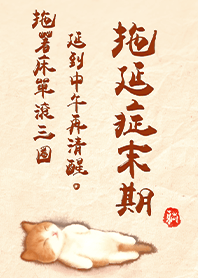 拖延症末期
延到中午再清醒。
拖著床單滾三圈